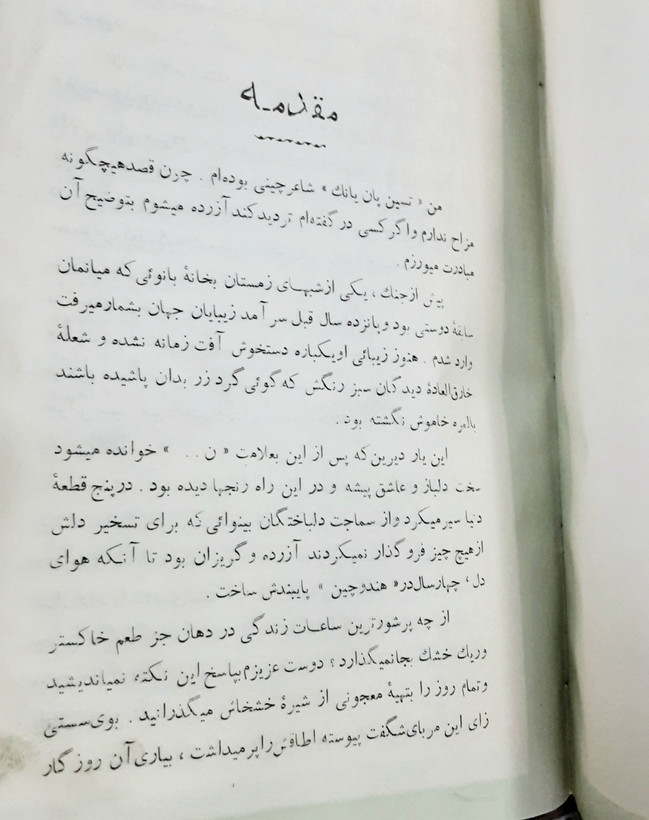 مقدمه
من « تسین پان یانك » شاعر چینی بوده‌ام . چون قصد هیچگونه
مزاح ندارم و اگر کسی در گفته‌ام تردید کند آزرده میشوم بتوضیح آن
مبادرت میورزم .
پیش از جنك ، یکی از شبهای زمستان بخانهٔ بانوئی که میانمان
سابقهٔ دوستی بود و پانزده سال قبل سر آمد زیبایان جهان بشمار میرفت
وارد شدم . هنوز زیبائی او یکباره دستخوش آفت زمانه نشده و شعلهٔ
خارق‌العادهٔ دیدگان سبز رنگش که گوئی گرد زر بدان پاشیده باشند
بالمره خاموش نگشته بود .
این یار دیرین که پس از این بعلامت « ن . . » خوانده میشود
سخت دلباز و عاشق پیشه و در این راه رنجها دیده بود . در پنج قطعهٔ
دنیا سیر میکرد و از سماجت دلباختگان بینوائی که برای تسخیر دلش
از هیچ چیز فرو گذار نمیکردند آزرده و گریزان بود تا آنکه هوای
دل ، چهار سال در « هندوچین » پایبندش ساخت .
از چه پرشورترین ساعات زندگی در دهان جز طعم خاکستر
وریك خشك بجا نمیگذارد ؟ دوست عزیزم بپاسخ این نکته نمیاندیشید
و تمام روز را بتهیهٔ معجونی از شیرهٔ خشخاش میگذرانید . بوی سستی
زای این مربای شگفت پیوسته اطاقش را پر میداشت ، بیاری آن روزگار